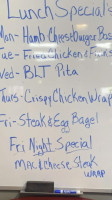 Lunch Special's
Mon- Hamb Cheese Burger Bas
Tue- Fried Chicken & Fries
Wed- BLT Pita
Thurs- Crispy Chicken Wrap
Fri- Steak & Egg Bagel
Fri Night Special
Mac & Cheese Steak
Wrap